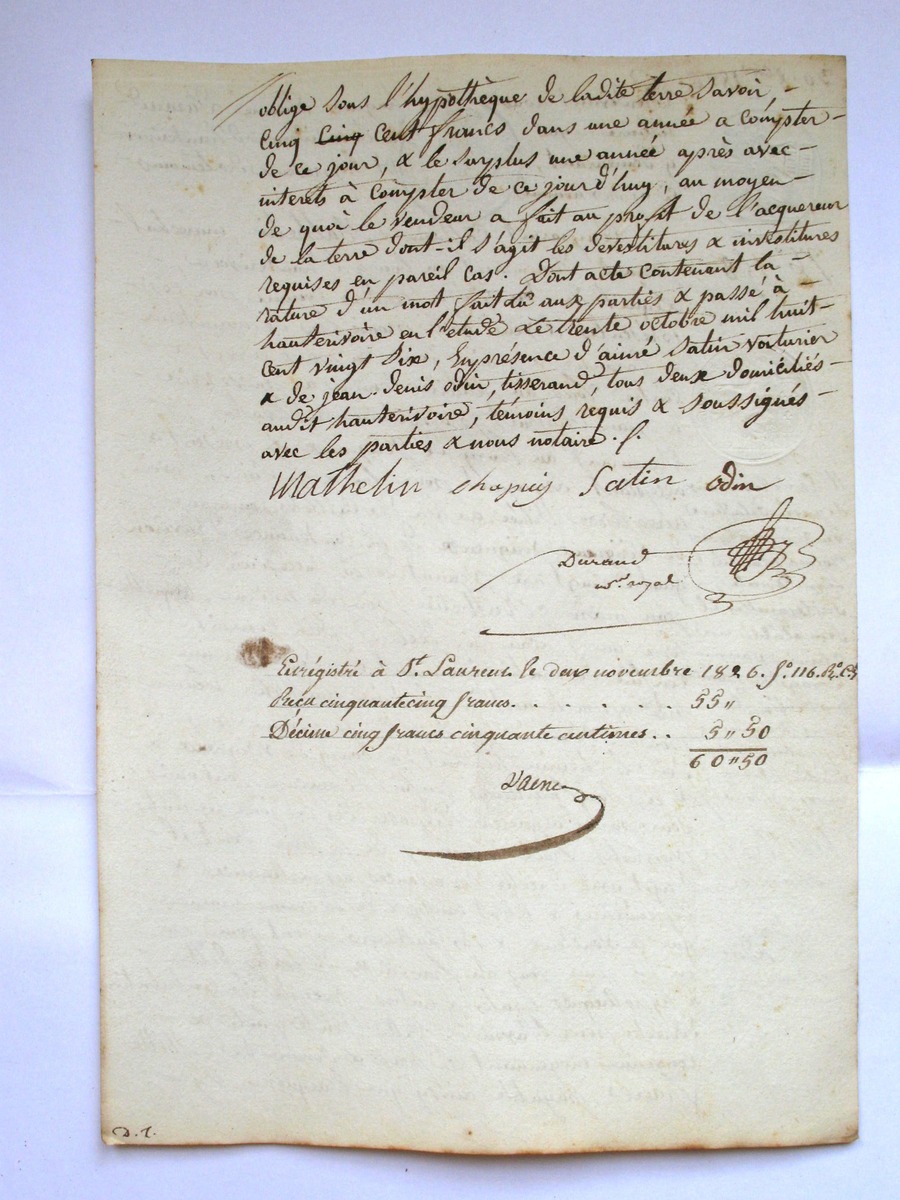 oblige sous l'hypothèque de ladite terre savoir,
cinq cinq cent francs dans une année a compter
de ce jour, & le surplus une année après avec
interets à compter de ce jour d'huy, au moyen
de quoi le vendeur a fait au profit de l'acquereur
de la terre dont-il s'agit les devestitures & investitures
requises en pareil cas. Dont acte contenant la
rature d'un mot fait lu aux parties & passé à
hauterivoire en l'etude le trente octobre mil huit
cent vingt six, En présence d'aimé Satin voiturier
& de jean-denis odin, tisserand, tous deux domiciliés
audit hauterivoire, témoins requis & soussignés
avec les parties & nous notaire.
Mathelin chapuis Satin Odin
Durand
not. royal
Enrégistré à St. Laurent le deux novembre 1826. fo. 116. Ro.
Reçu cinquante cinq francs. . . . . . 55 "
Décime cinq francs cinquante centimes . . 5 " 50
60 " 50
D. T.